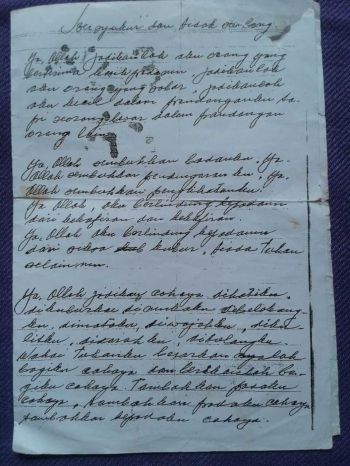 Bersyukur dan tidak sombong.
Ya, Allah jadikanlah aku orang yang
berterima kasih padamu. Jadikanlah
aku orang yang sabar. Jadikanlah
aku kecil dalam pandanganku ta-
pi seorang besar dalam pandangan
orang lain.
Ya, Allah sembuhkan badanku. Ya,
Allah sembuhkan pendengaranku. Ya,
Allah sembuhkan penglihatanku.
Ya Allah, aku berlindung kepadamu
dari kekafiran dan kekafiran.
Ya, Allah aku berlindung kepadamu
dari siksa kubur, tiada Tuhan
selain mu.
Ya, Allah jadikan cahaya dihatiku,
dikuburku didepanku dibelakang-
ku, dimataku, diwajahku, diku-
litku, didarahku, ditulangku.
Wahai Tuhanku besarkanlah
bagiku cahaya dan berikanlah ba-
giku cahaya. Tambahkan padaku
cahaya, tambahkan padaku cahaya
tambahkan kepadaku cahaya.